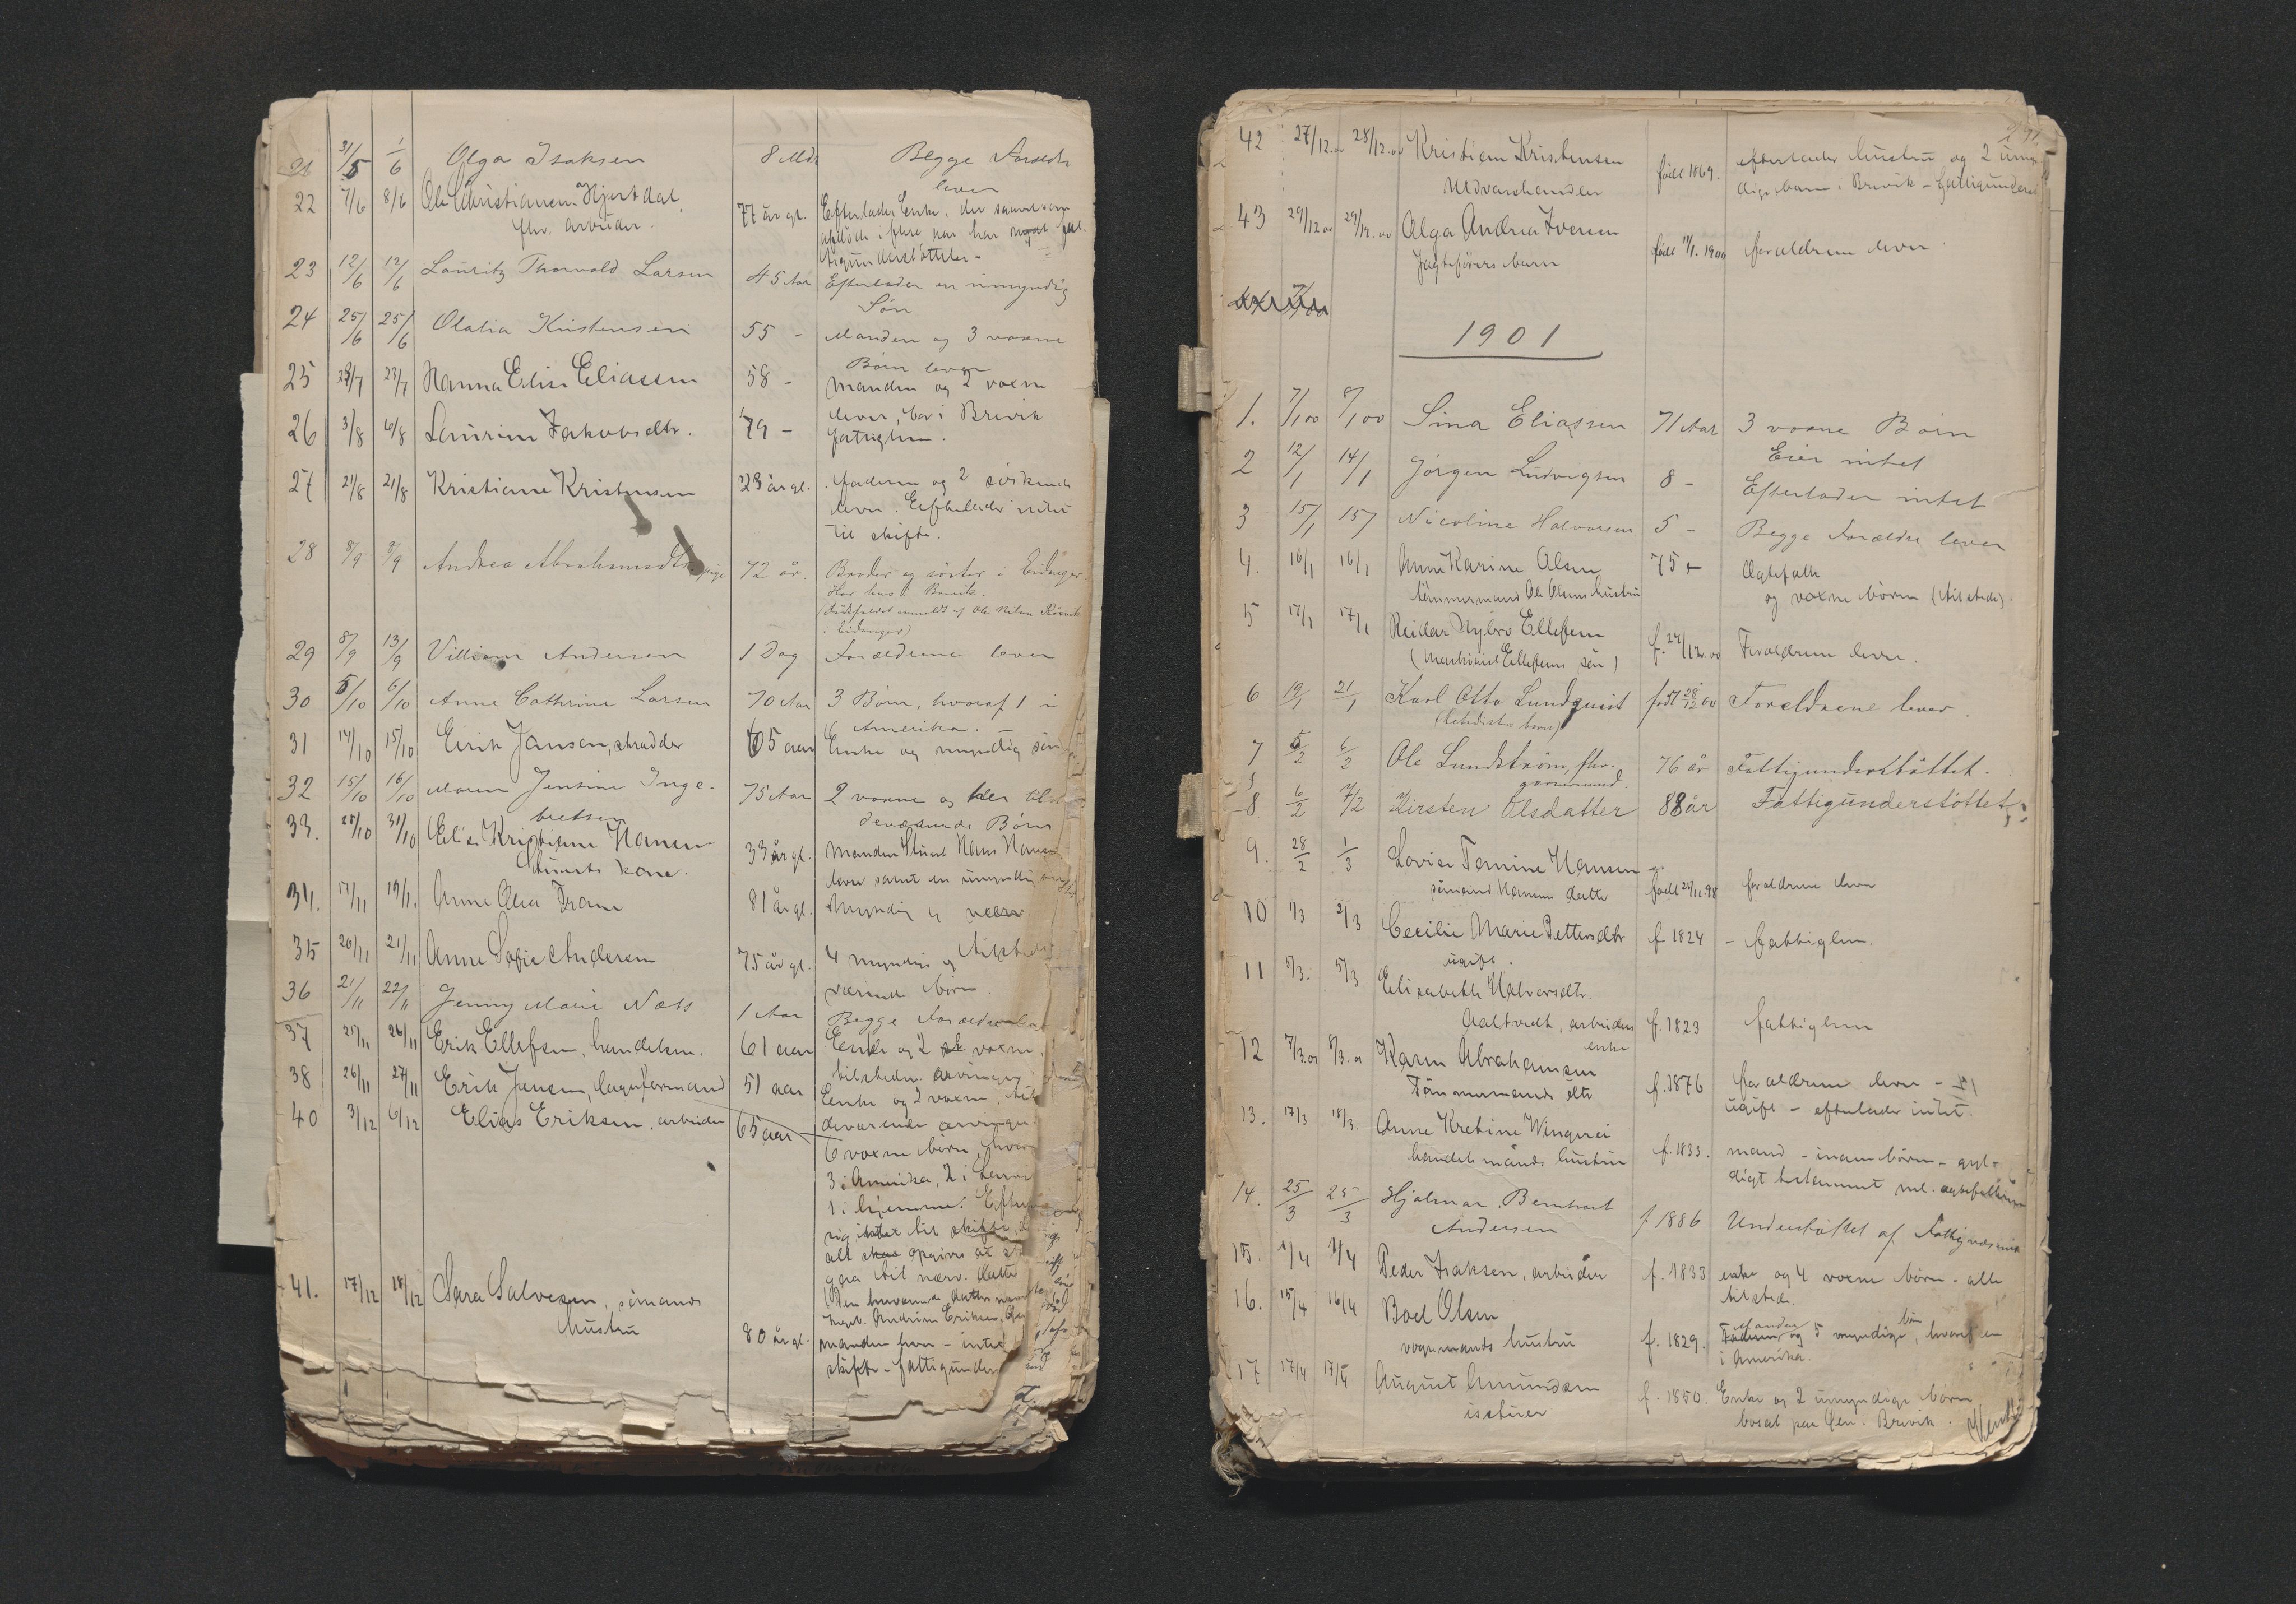 21 31/5 1/6 Olga Isaksen 8 Mdr Begge Forældr
lever
22 7/6 8/6 Ole Christiansen Hjertdal 77 år gl. Efterlader Enke, der saavel som
fhv. arbeider. afdöde i flere aar har nydt fat-
tigunderstöttelse -
23 12/6 12/6 Lauritz Thorvald Larsen 45 Aar Efterlader en umyndig
Søn
24 25/6 25/6 Olalia Kristensen 55 - Manden og 3 voxne
Børn lever
25 23/7 Hanna Elise Eliassen 58 - manden og 2 voxne
lever, bor i Brevik
26 3/8 6/8 Laurine Jakobsdtr. 79 - fattiglem.
27 21/8 21/8 Kristiane Kristensen 23 år gl. faderen og 2 söskende
lever. Efterlader intet
til skifte.
28 8/9 9/9 Andrea Abrahamsdtr pige 72 år. Broder og söster i Eidanger.
Har hus i Brevik.
(Dödsfaldet anmeldt af Ole Nilsen
i Eidanger)
29 8/9 13/9 Villiam Andersen 1 Dag Forældrene lever
30 5/10 6/10 Anne Cathrine Larsen 70 Aar 3 Børn, hvoraf 1 i
Amerika.
31 14/10 15/10 Eirik Jansen, skrædder 65 aar Enke og myndig sön
32 15/10 16/10 Maren Jensine Inge- 75 Aar 2 voxne og her tilste
bretsen deværende Børn
33. 28/10 31/10 Elise Kristiane Hansen 33 år gl. manden Stuert Hans Hansen
Stuerts kone. lever samt en umyndig
34. 17/11 19/11. Anne Olea Tran 81 år gl. Myndig
35 20/11 21/11 Anne Sofie Andersen 75 år gl. 4 myndige og tilste
værende börn.
36 21/11 22/11 Jenny Marie Næss 1 Aar Begge Forældre
37 25/11 26/11 Erik Ellefsen, handelsm. 61 aar Enke og 2 voxne,
tilstedev. arvinger
38 26/11 27/11 Erik Jensen, lagerformand 51 aar Enke og 2 voxne,
deværende arvinger
40 3/12 6/12 Elias Eriksen, arbeider 65 aar 6 voxne börn, hvor
3 i Amerika, 2 i
1 i hjemmet. Efter
sig intet til skifte
alt opgives at
gaa til nærv. datter
(Den hjemværende datters navn
ugift. Andrine Eriksen
41. 17/12 18/12 Sara Salvesen, sömands
hustru 80 år gl. manden lever - intet
skifte - fattigunder
42 27/12.00 28/12.00 Kristian Kristensen
Uldvarehandler född 1869. efterlader hustru og 2 umyn
dige barn i Brevik - fattigunderst
43 29/12 00 29/12.00 Olga Andrea Iversen
Jagteförers barn född 11/1.1900 forældrene lever
1901
1. 7/1 00 8/1 00 Sina Eliassen 71 Aar 3 voxne Børn
Eier intet
2 12/1 14/1 Jörgen Ludvigsen 8 - Efterlader intet
3 15/1 15/ Nicoline Halvorsen 5 - Begge Forældre lever
4. 16/1 16/1 Anne Karine Olsen 75 - Ægtefælle
tömmermand Ole Olsens hustru og voxne börn (tilstede).
5 17/1 17/1 Reidar Nybro Ellefsen
(Maskinist Ellefsens sön) f. 24/12.00 Forældrene lever.
6 19/1 21/1 Karl Otto Lundquist född 28/12 00 Foreldrene lever.
7 5/2 6/2 Ole Lundström, fhv. 76 år Fattigunderstöttet.
8. 6/2 7/2 Kirsten Olsdatter 88 år Fattigunderstöttet.
9. 28/2 1/3 Lovise Tomine Hansen
sömand Hansens datter född 24/11.98 forældrene lever
10 1/3 2/3 Cecilie Marie Pettersdtr f 1824 - fattiglem.
ugift.
11 5/3. 5/3 Elisabeth Halvorsdtr.
Aaltvedt, arbeiders f. 1823 fattiglem
enke
12 7/3.01 8/3.01 Karen Abrahamsen
Tömmermands dtr f. 1876 forældrene lever -
ugift - efterlader intet.
13. 17/3 18/3. Anne Kretine Wingerei
handelsmands hustru f. 1833. mand - ingen börn - gyl-
digt testament ml. ægtefællerne
14. 25/3 25/3 Hjalmar Bernhart
Andersen f 1886 Understöttet af Fattigvæsenet
15. 1/4 1/4 Peder Isaksen, arbeider f. 1833 enke og 4 voxne börn - alle
tilstede.
16. 15/4 16/4 Boel Olsen
vognmands hustru f. 1829. Manden og 5 myndige börn, hvoraf en
i Amerika.
17 17/4 17/4 August Amundsen
f. 1850. Enke og 2 umyndige börn
bosat paa Öen. Brevik.